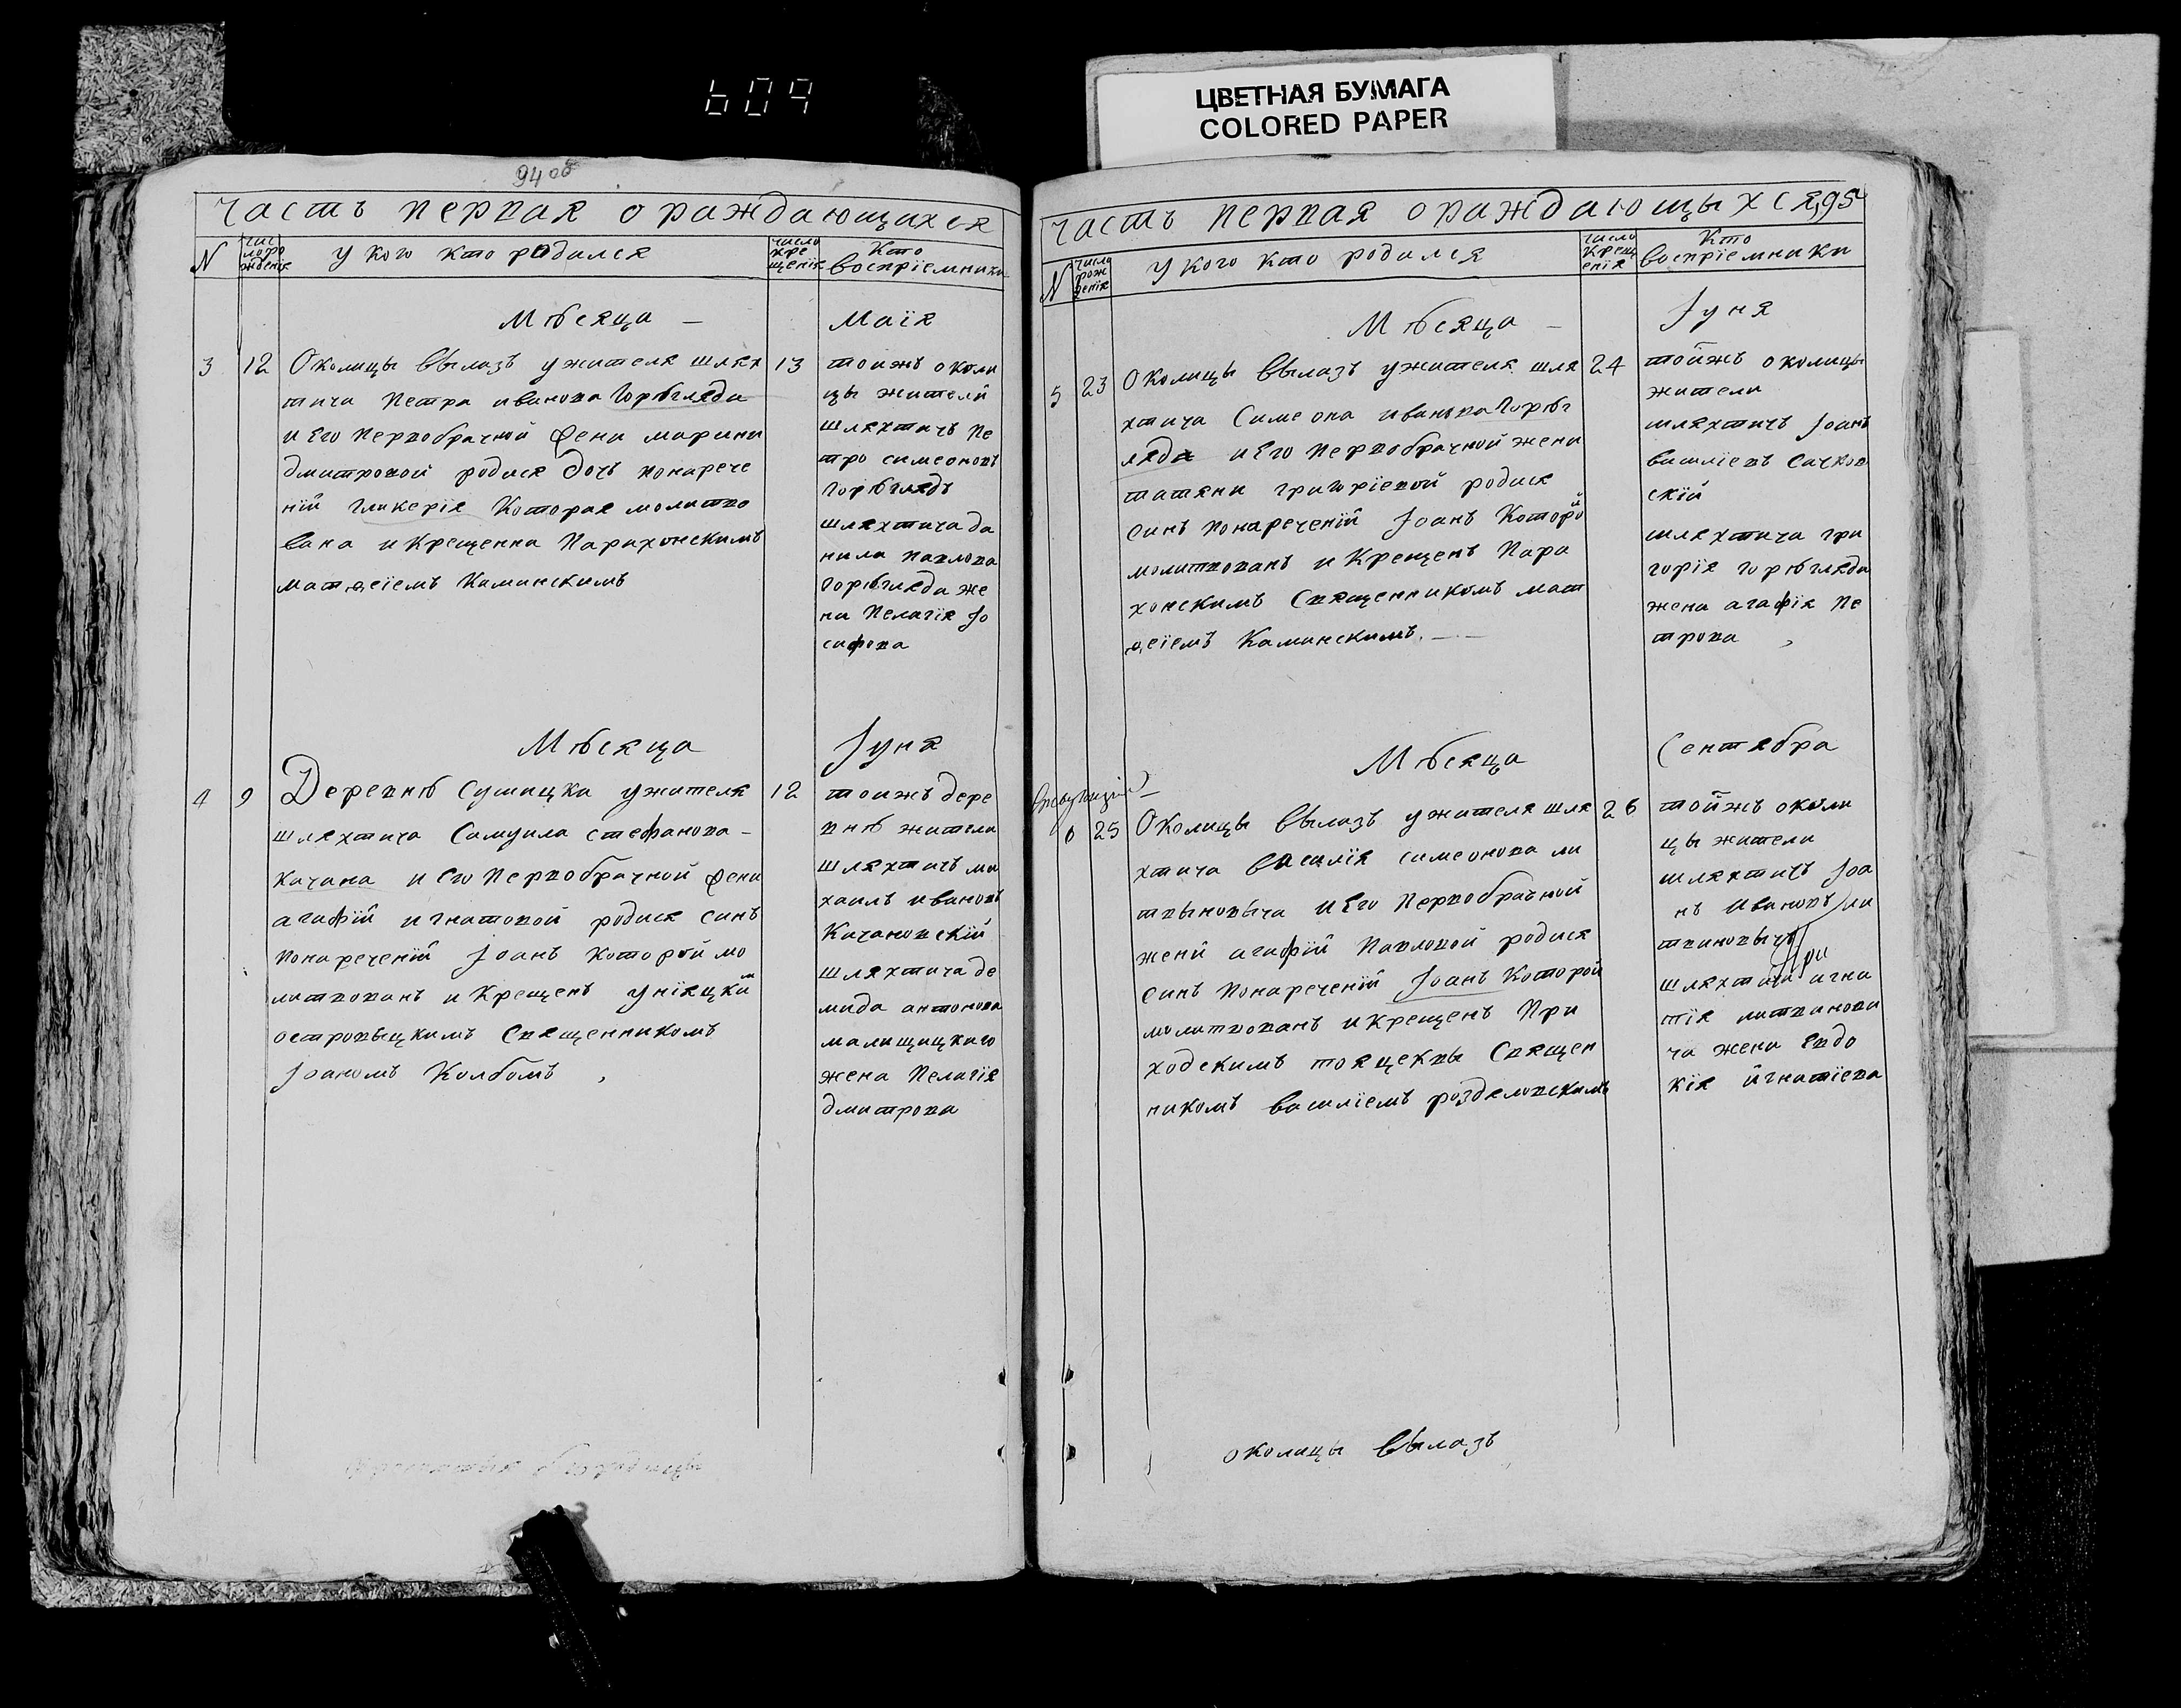 609
ЦВЕТНАЯ БУМАГА
COLORED PAPER
94 об
часть первая о раждающихся
N
число рождения
у кого кто родился
число крещенія
Кто воспріемники
Мѣсяца — Маія
3 12
Околицы вылазъ ужителя шлях
тича Петра иванова Горбгляда
и Его первобрачной Ѳени марини
дмитровой родися дочь понарече
ній гликерія Которая молитво
вана и Крещенна Парахонскимъ
матѳеіемъ Каминскимъ
13
тоижъ околи
цы жителй
шляхтичъ Пе
тро симеоновъ
Горбглядъ
шляхтича да
нила павлова
Горбгляда же
на Пелагія Іо
сифова
Мѣсяца Іуня
4 9
Деревнѣ Сушицка ужителя
шляхтича Самуила стефанова —
Качана и Его первобрачной Ѳени
агафій игнатовой родися синъ
понареченій Іоанъ которой мо
литвованъ и Крещенъ уніяцки
островыцкимъ Священникомъ
Іоаномъ Колбомъ
12
тоижъ дере
внѣ жители
шляхтичъ ми
хаилъ ивановъ
Качановскій
шляхтича де
мида антонова
малищицкаго
жена Пелагія
дмитрова
часть первая о раждающыхся 95
N
число рожденія
у кого кто родился
число Крещенія
Кто воспріемники
Мѣсяца — Іуня
5 23
Околицы вылазъ ужителя шля
хтича Симеона иванова Горбг
ляда и Его первобрачной жени
татяни григоріевой родися
синъ понареченій Іоанъ Которой
молитвованъ и Крещенъ Пара
хонскимъ Священникомъ мат
ѳеіемъ Каминскимъ. — —
24
тойжъ околицы
жители
шляхтичъ Іоанъ
василіевъ Сачков
скій
шляхтича гри
горія горбгляда
жена агафія Пе
трова
Мѣсяца Сентябра
6 25
Околицы вылазъ ужителя шля
хтича василія симеонова ли
твыновыча и Его первобрачной
жени агафій Павловой родися
синъ понареченій Іоанъ Которой
молитвованъ и Крещенъ При
ходскимъ тояцеквы Священ
никомъ василіемъ розделовскимъ
26
тойжъ околи
цы жители
шляхтичъ Іоа
нъ ивановъ ли
твиновычъ
шляхтича игна
тія литвинови
ча жена Евдо
кія йгнатіева
околицы вылазъ